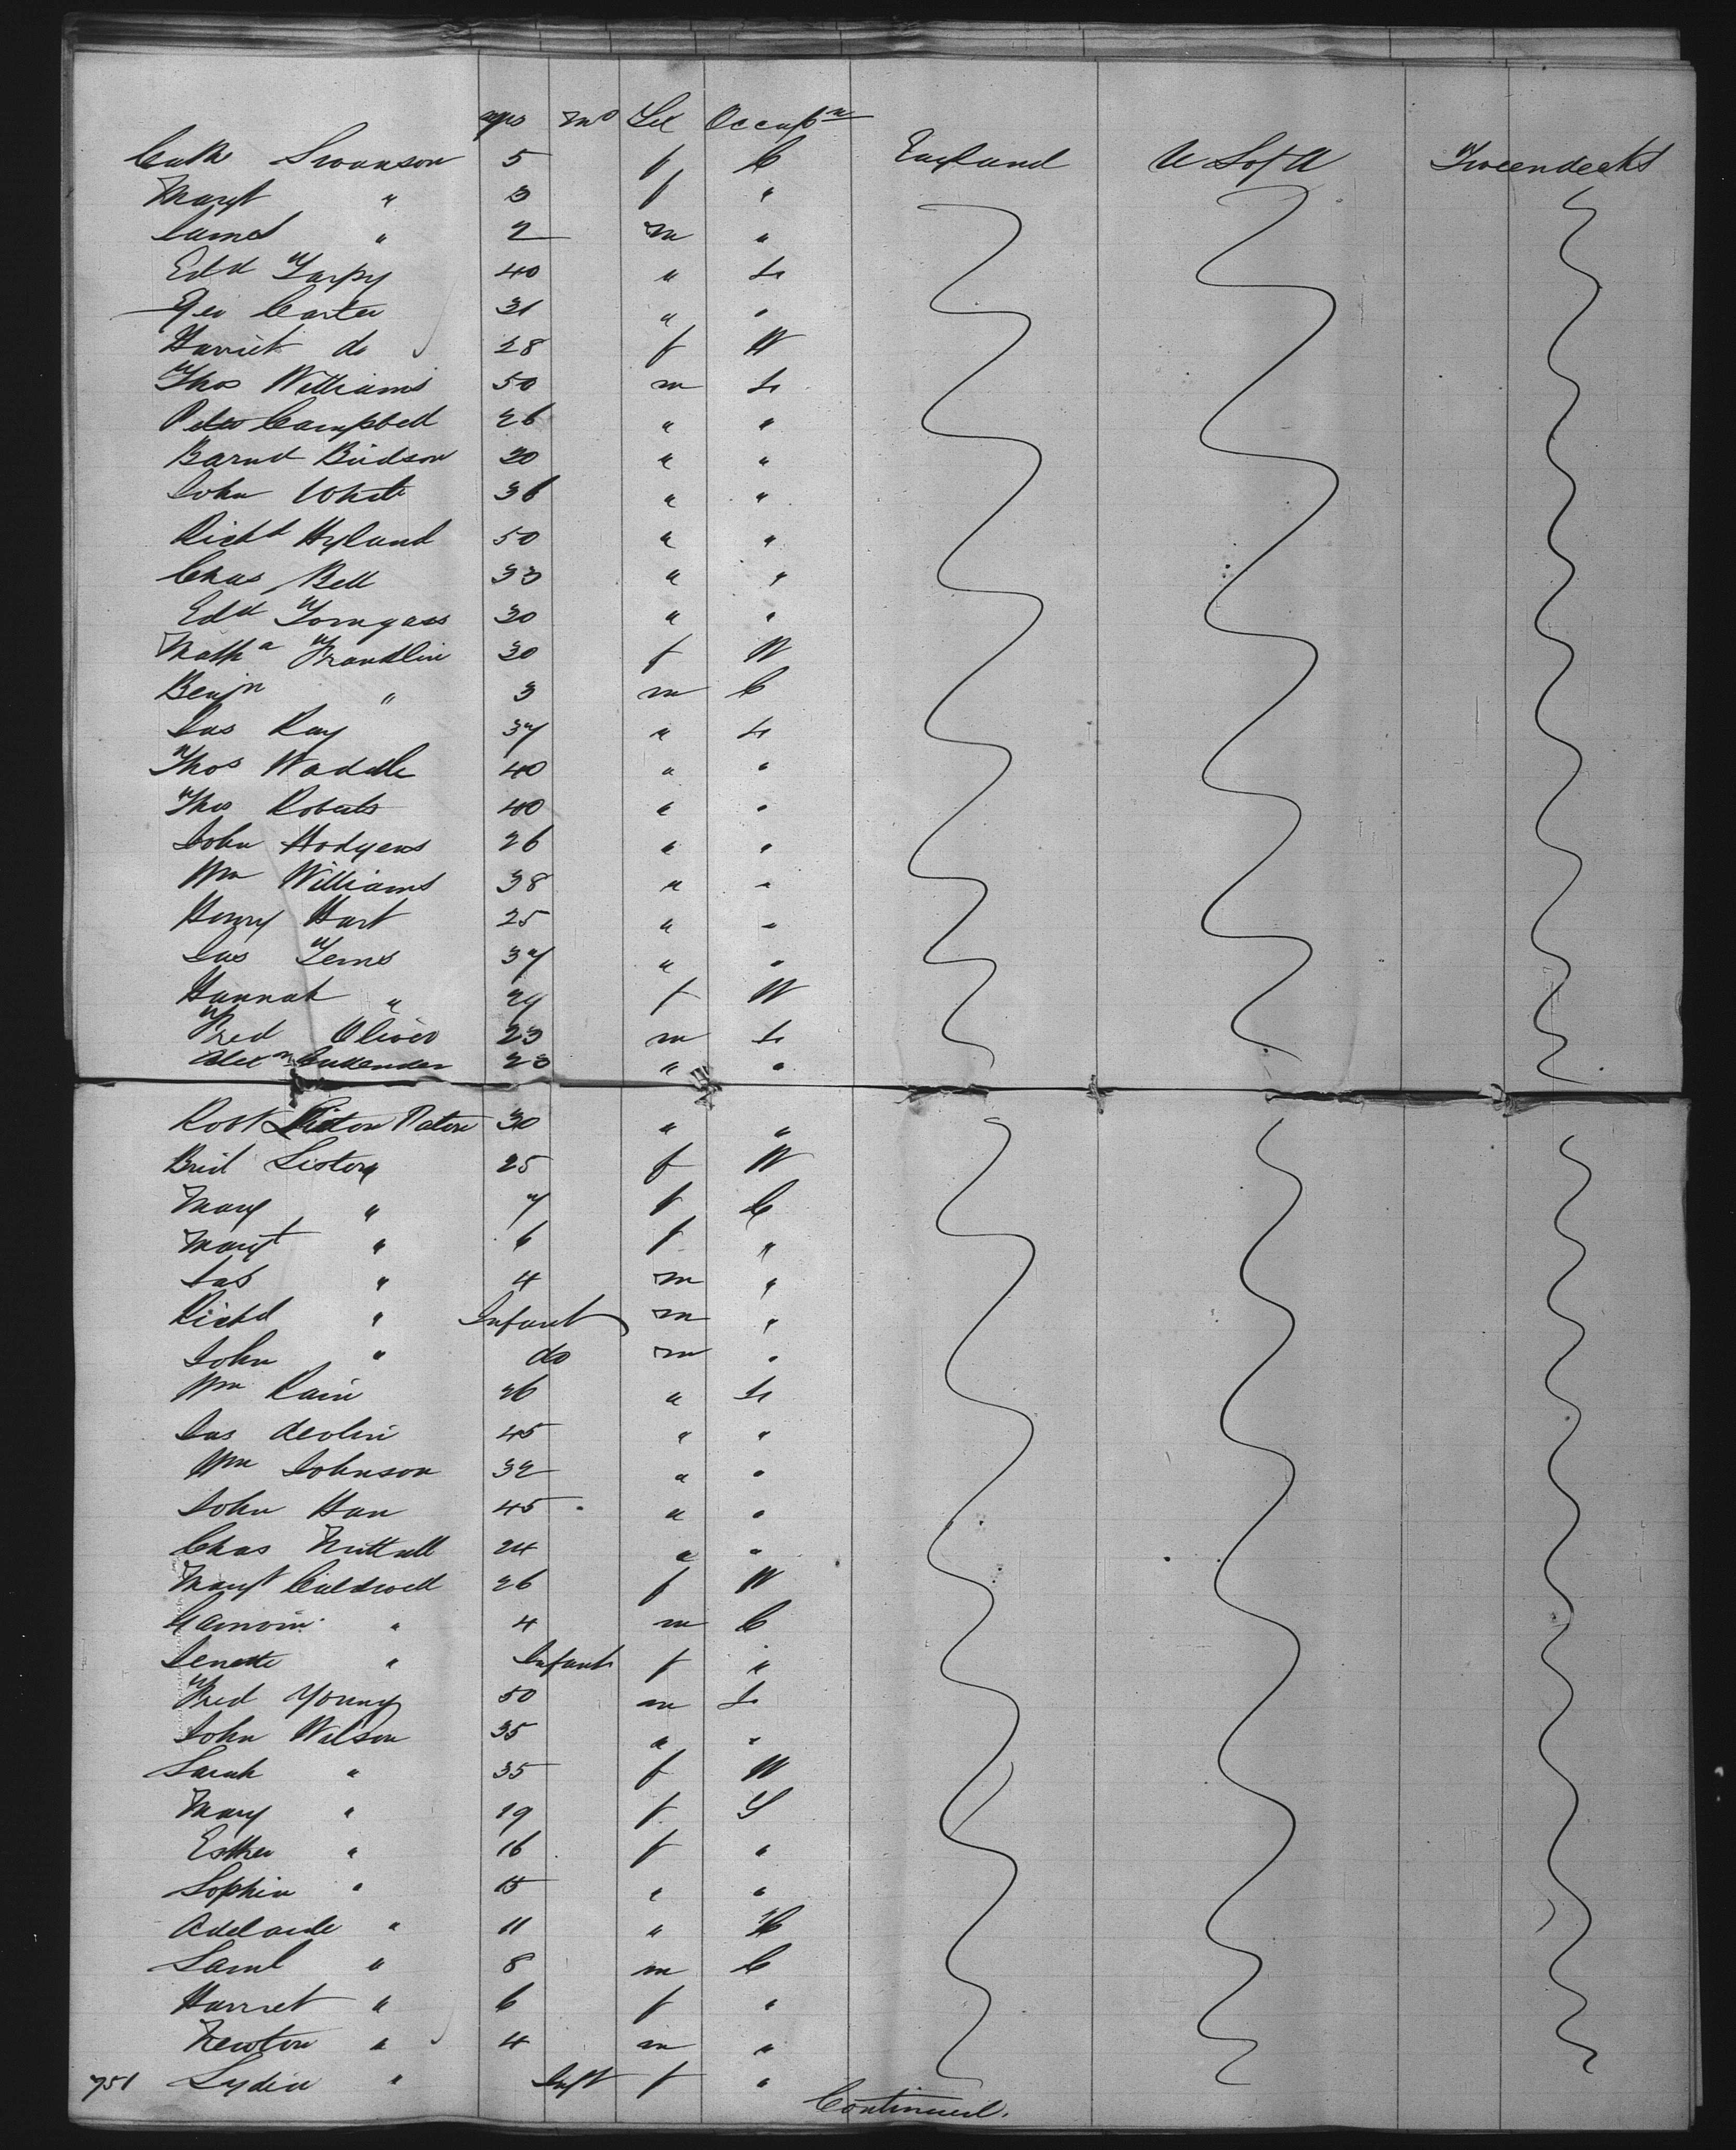 yrs mo Sex Occupn
Cath Swanson 5 f C England U S of A Tweendecks
Margt " 3 f "
James " 2 m "
Edd Tarpy 40 " Lr
Geo Carter 31 " "
Harriet do 28 f W
Thos Williams 50 m Lr
Peter Campbell 26 " "
Barnd Budson 20 " "
John White 36 " "
Richd Hyland 50 " "
Chas Bell 33 " "
Edd Torngass 30 " "
Matha Frandlin 30 f W
Benjn " 3 m C
Jas Ray 37 " Lr
Thos Waddle 40 " "
Thos Roberts 40 " "
John Hodgens 26 " "
Wm Williams 38 " "
Henry Hart 25 " "
Jas Ferns 37 " "
Hannah " 29 f W
Fred Oliver 23 m Lr
Alexr Callender 23 " "
Robt Paton 30 " "
Brid Liston 25 f W
Mary " 7 f C
Margt " 6 f "
Jas " 4 m "
Richd " Infant m "
John " do m "
Wm Rain 26 " Lr
Jas Devlin 45 " "
Wm Johnson 32 " "
John Han 45 " "
Chas Nuttall 24 " "
Margt Caldwell 26 f W
" 4 m C
Jenette " Infant f "
Fred Young 50 m Lr
John Wilson 35 " "
Sarah " 35 f W
Mary " 19 f S
Esther " 16 f "
Sophia " 15 " "
Adelaide " 11 " C
Saml " 8 m C
Harriet " 6 f "
Newton " 4 m "
751 Lydia " Inft f "
Continued.